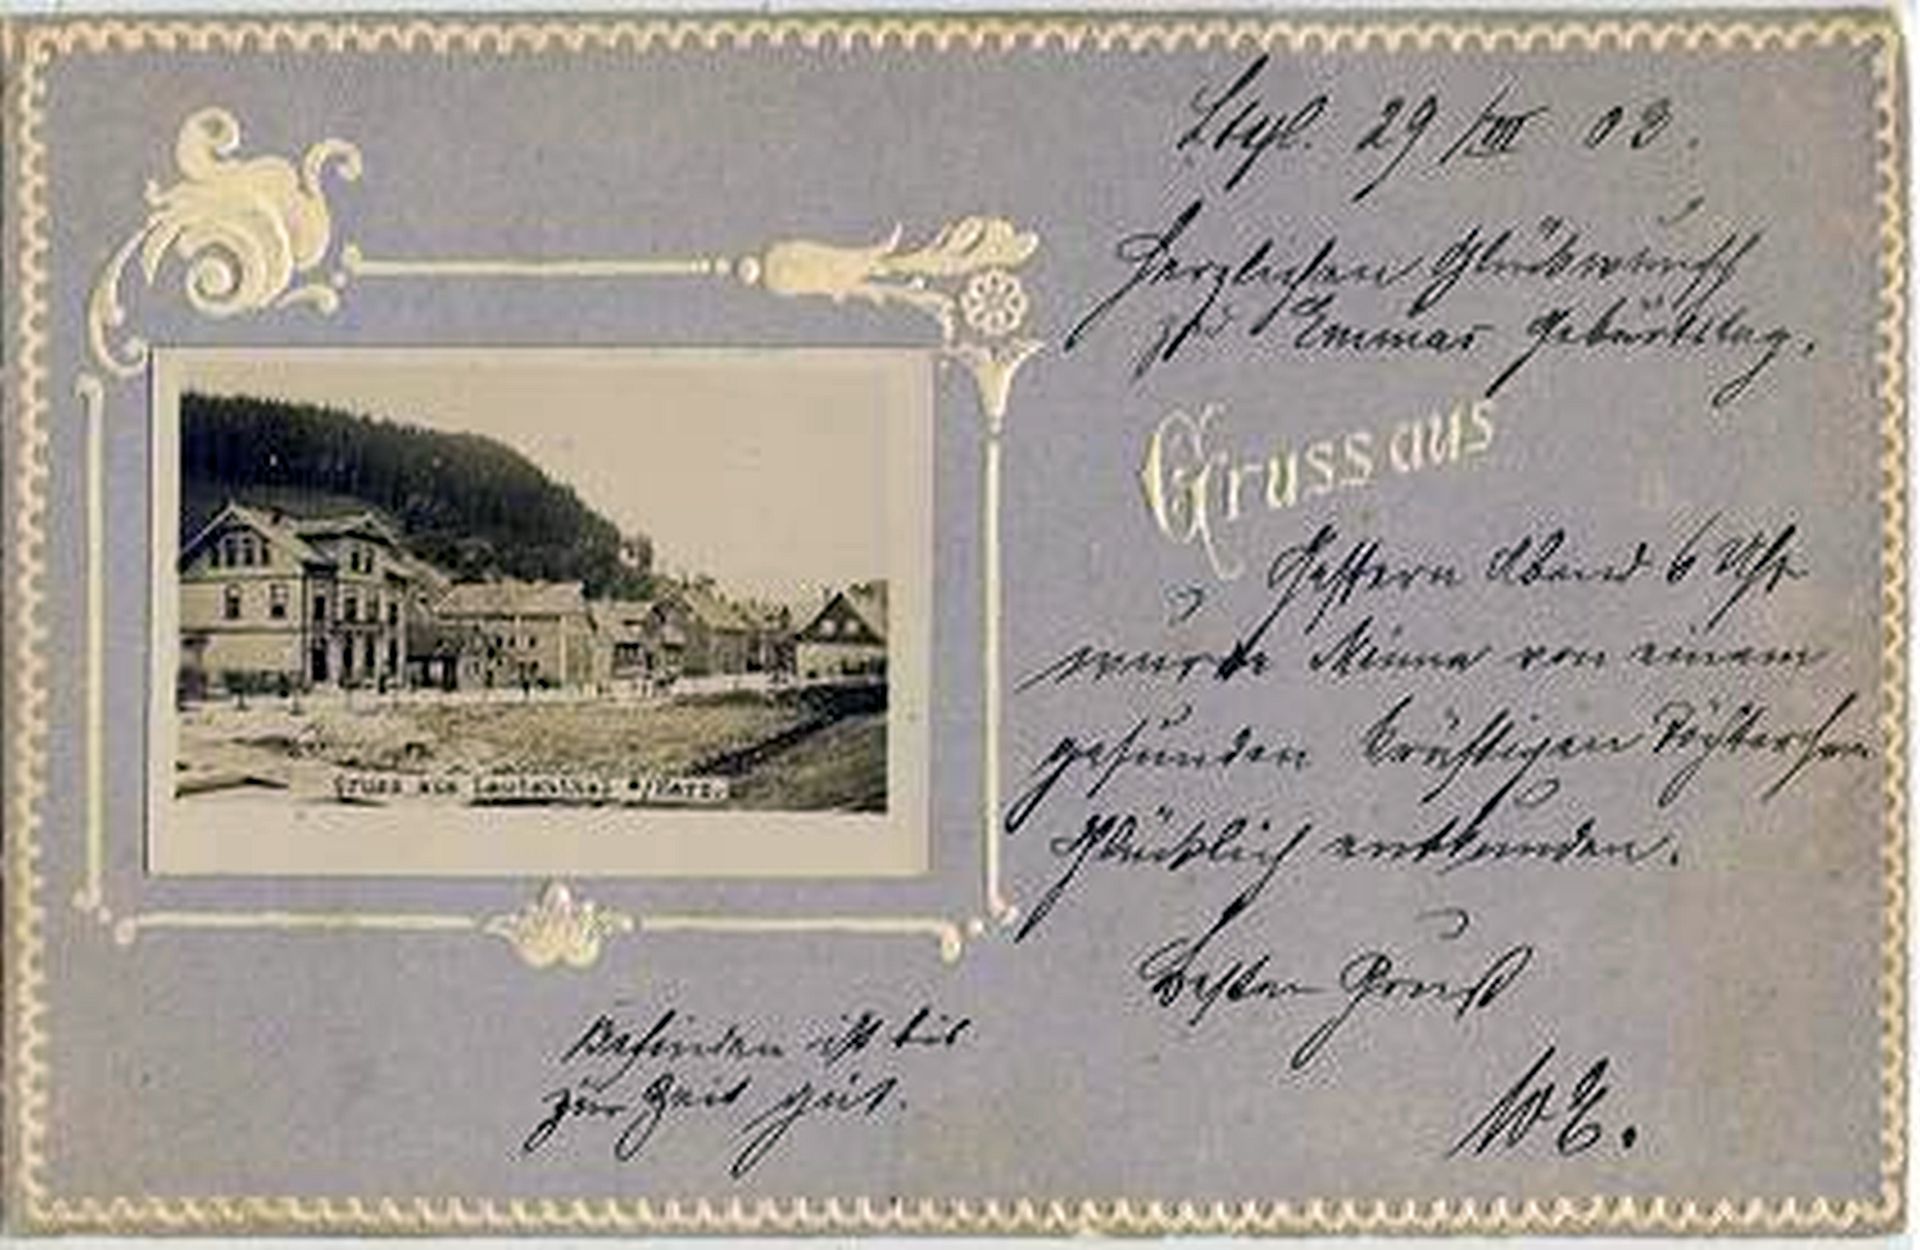 29/VIII 03.
Herzlichen Glückwunsch
zu Emmas Geburtstag.
Gruss aus
Gestern Abend 6 Uhr
wurde Minna von einem
gesunden kräftigen Töchterchen
Glücklich entbunden.
Besten Gruß
W E.
Befinden ist bis
zur Zeit gut.
Gruss aus Lautenthal a/Harz.